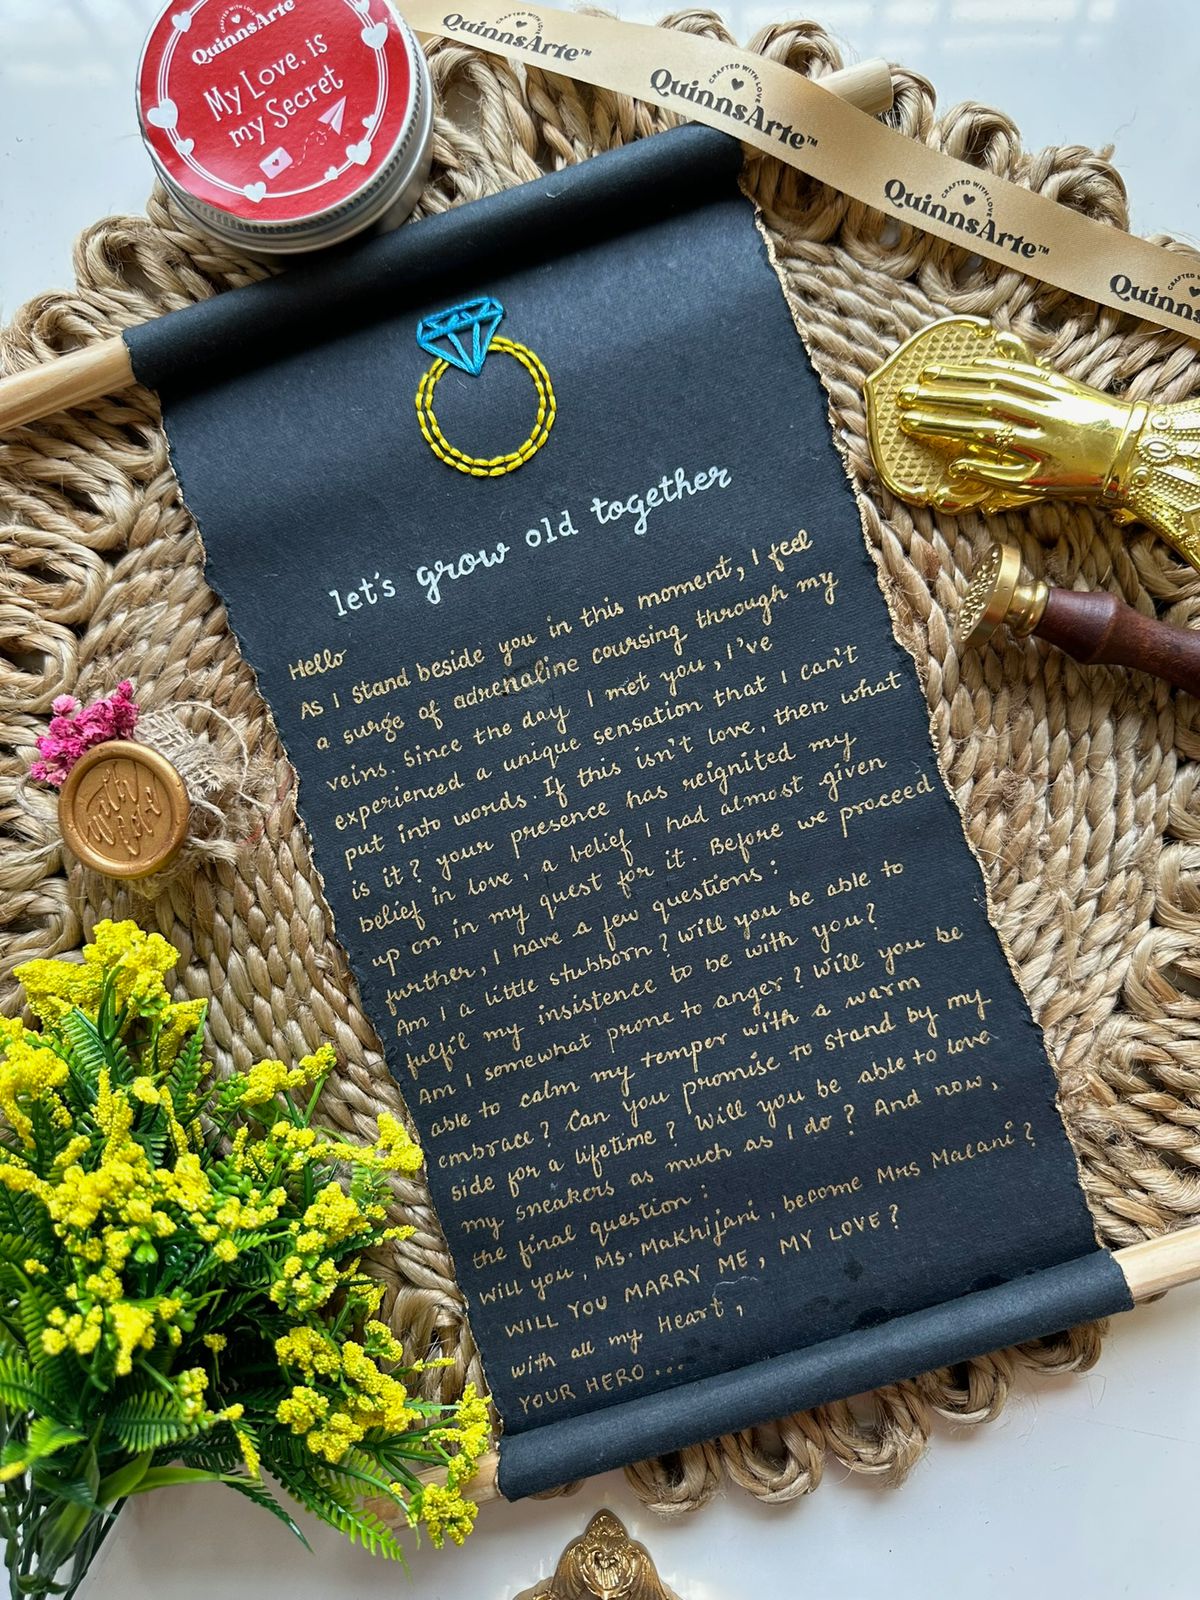 QuinnsArte
My Love, is
my Secret
CRAFTED WITH LOVE
QuinnsArte™
CRAFTED WITH LOVE
QuinnsArte™
CRAFTED WITH LOVE
QuinnsArte™
CRAFTED WITH
Quinns
let's grow old together
Hello
As I stand beside you in this moment, I feel
a surge of adrenaline coursing through my
veins. Since the day I met you, I've
experienced a unique sensation that I can't
put into words. If this isn't love, then what
is it? your presence has reignited my
belief in love, a belief I had almost given
up on in my quest for it. Before we proceed
further, I have a few questions:
Am I a little stubborn? Will you be able to
fulfil my insistence to be with you?
Am I somewhat prone to anger? Will you be
able to calm my temper with a warm
embrace? Can you promise to stand by my
side for a lifetime? Will you be able to love
my sneakers as much as I do? And now,
the final question:
will you, Ms. Makhijani, become Mrs Malani?
WILL YOU MARRY ME, MY LOVE?
with all my Heart,
YOUR HERO...
with
love